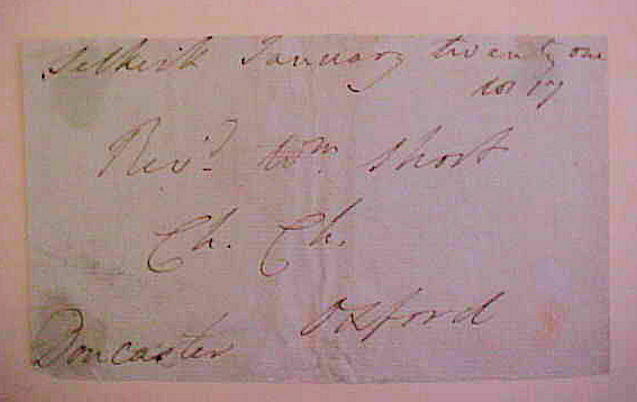 Selkirk January twenty one
1817
Rev.d Wm. Short
Ch. Ch.
Oxford
Doncaster